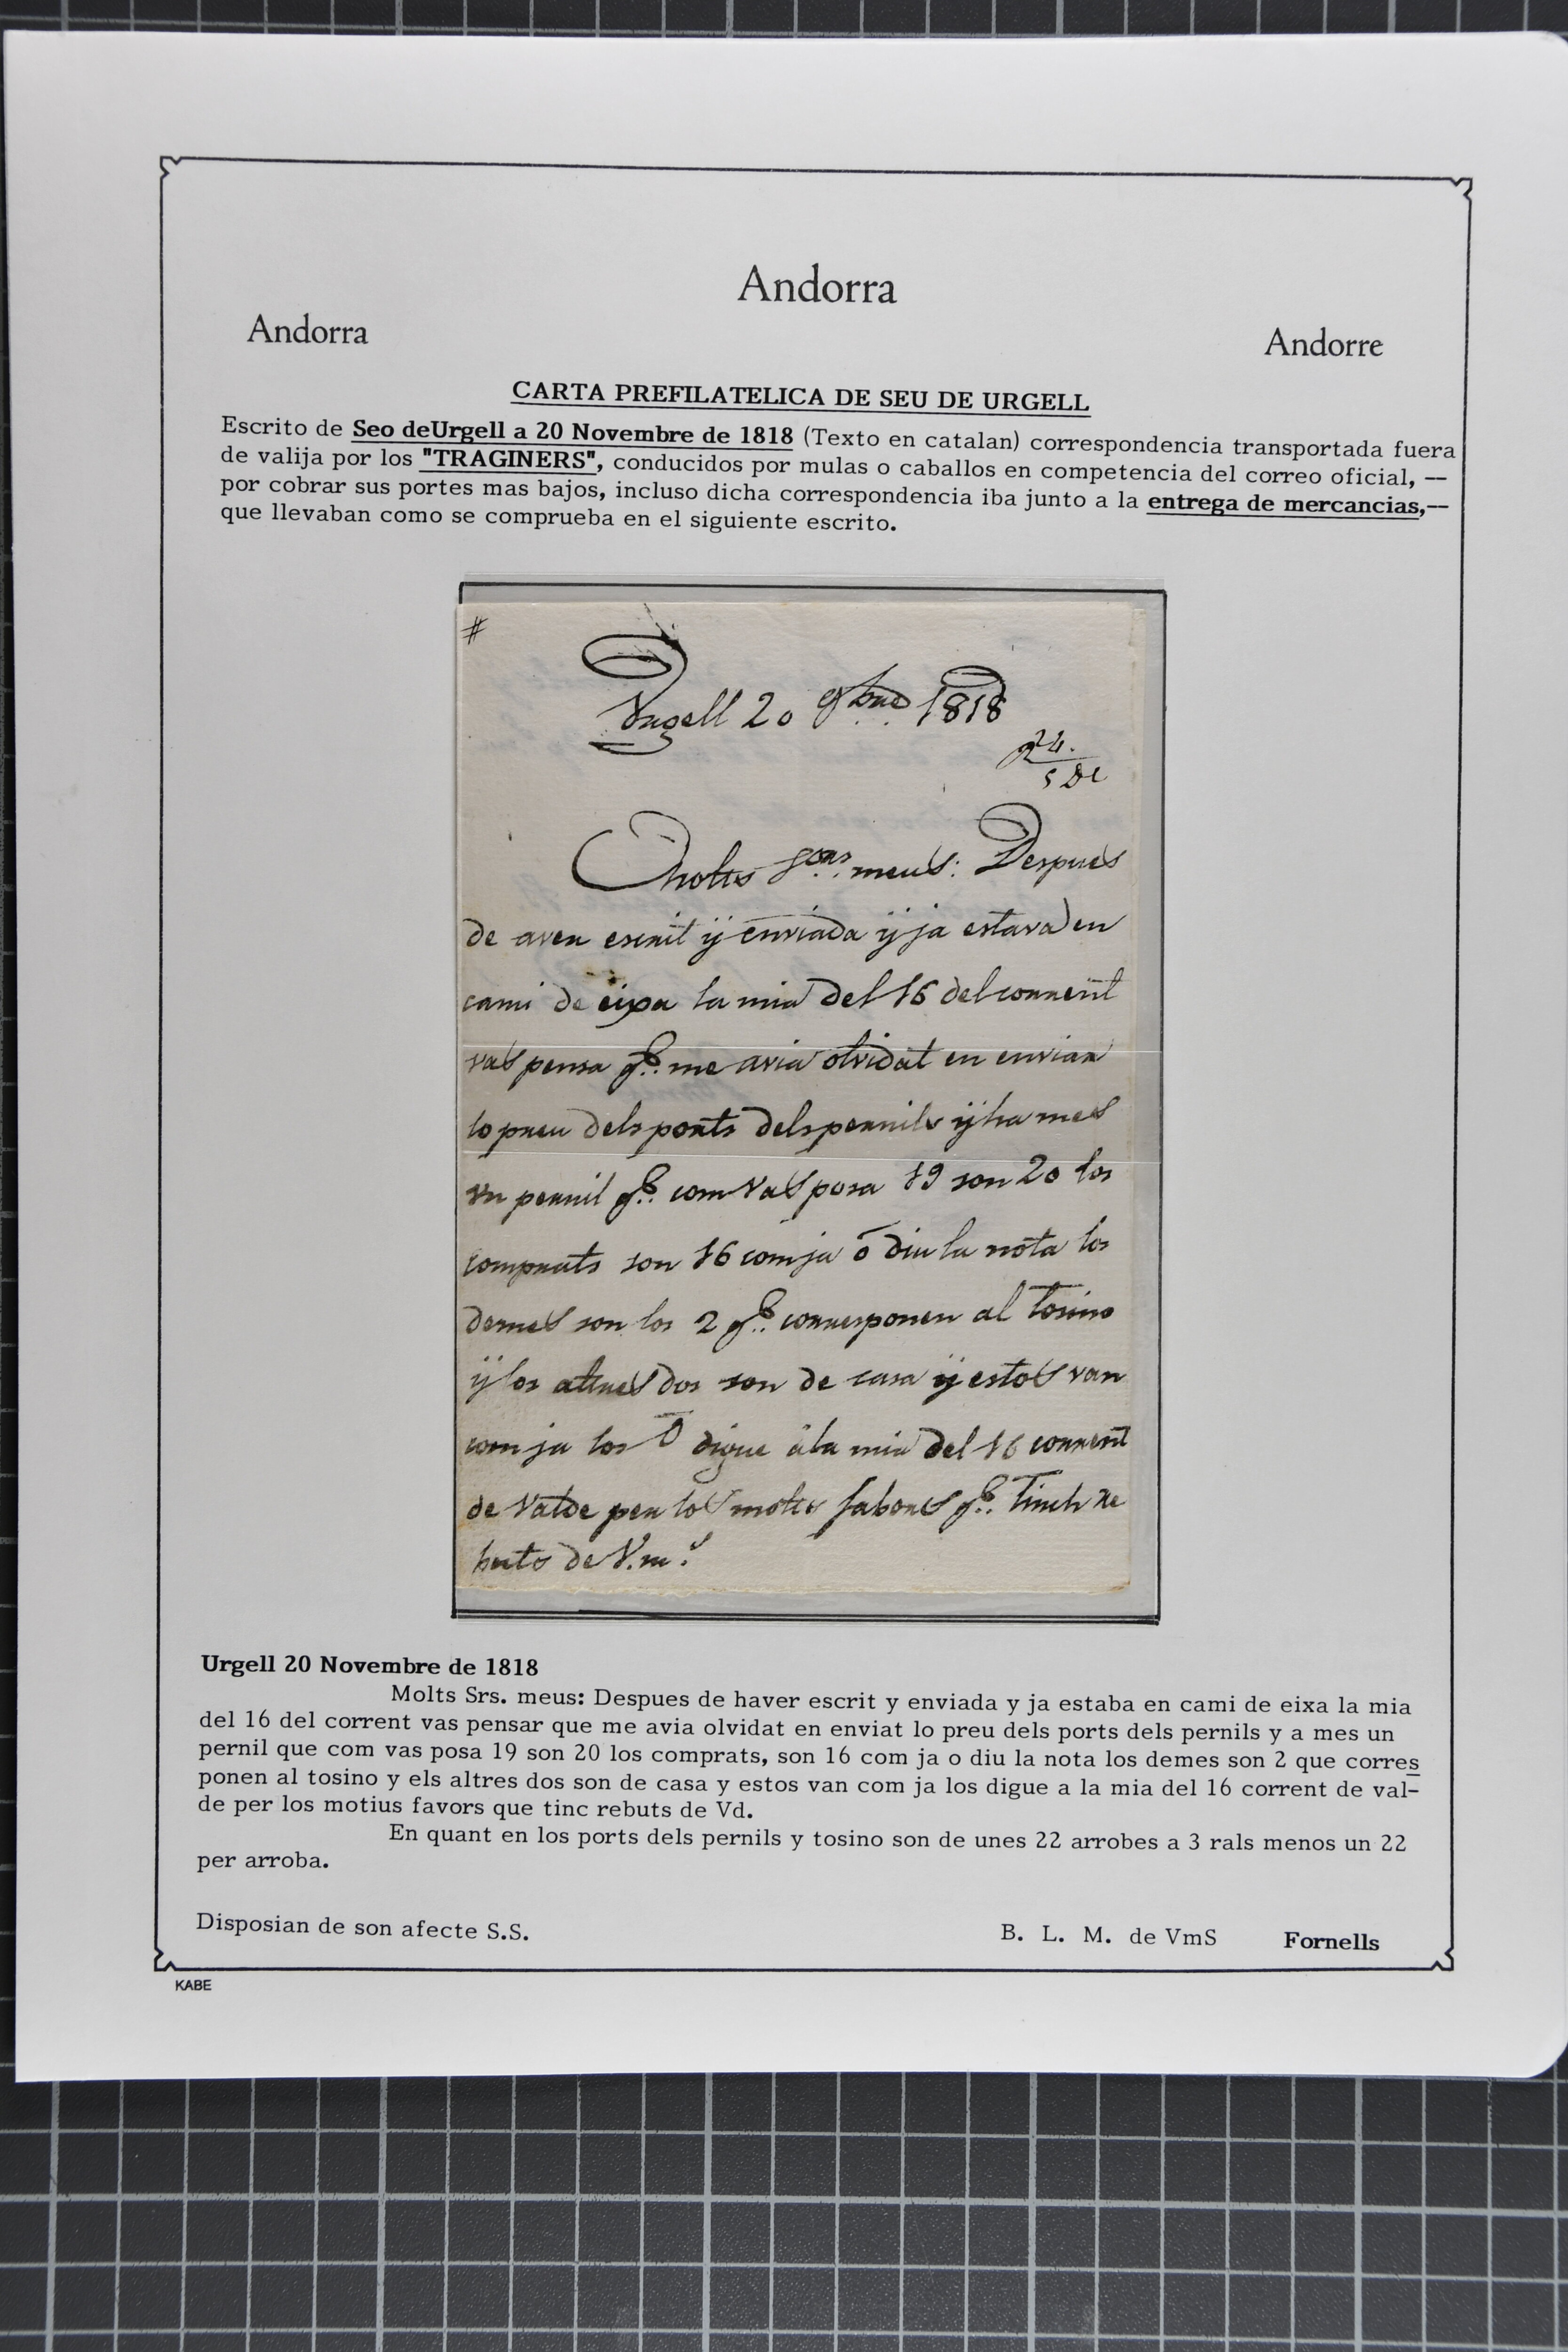 Andorra
Andorra
Andorre
CARTA PREFILATELICA DE SEU DE URGELL
Escrito de Seo deUrgell a 20 Novembre de 1818 (Texto en catalan) correspondencia transportada fuera
de valija por los "TRAGINERS", conducidos por mulas o caballos en competencia del correo oficial, --
por cobrar sus portes mas bajos, incluso dicha correspondencia iba junto a la entrega de mercancias,--
que llevaban como se comprueba en el siguiente escrito.
#
Urgell 20 9bre 1818
Molts Srs. meus: Despues
de aver escrit ÿ enviada ÿ ja estava en
cami de eixa la mia del 16 del corrent
vas pensa qe. me avia olvidat en enviar
lo preu dels ports dels pernils ÿ ha mes
un pernil qe. com vas posa 19 son 20 los
comprats son 16 com ja ó diu la nota los
demes son los 2 qe. corresponen al tosino
ÿ los altres dos son de casa ÿ estos van
com ja los ó digue á la mia del 16 corrent
de valde per los molts fabors qe. tinch re
buts de V.ms
Urgell 20 Novembre de 1818
Molts Srs. meus: Despues de haver escrit y enviada y ja estaba en cami de eixa la mia
del 16 del corrent vas pensar que me avia olvidat en enviat lo preu dels ports dels pernils y a mes un
pernil que com vas posa 19 son 20 los comprats, son 16 com ja o diu la nota los demes son 2 que corres
ponen al tosino y els altres dos son de casa y estos van com ja los digue a la mia del 16 corrent de val-
de per los motius favors que tinc rebuts de Vd.
En quant en los ports dels pernils y tosino son de unes 22 arrobes a 3 rals menos un 22
per arroba.
Disposian de son afecte S.S.
B. L. M. de VmS Fornells
KABE